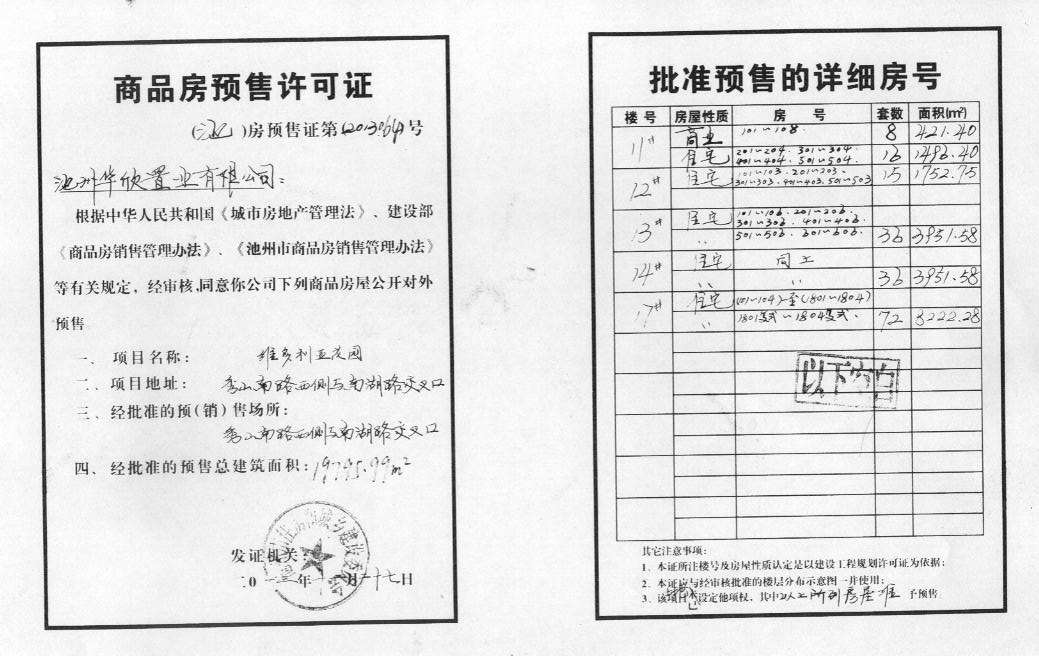 商品房预售许可证
(池)房预售证第(2013064)号
池州华欣置业有限公司：
根据中华人民共和国《城市房地产管理法》、建设部
《商品房销售管理办法》、《池州市商品房销售管理办法》
等有关规定，经审核，同意你公司下列商品房屋公开对外
预售
一、项目名称：维多利亚花园
二、项目地址：秀山南路西侧与南湖路交叉口
三、经批准的预(销)售场所：
秀山南路西侧与南湖路交叉口
四、经批准的预售总建筑面积：19795.99m²
发证机关：
二0一 年 月 十七日
批准预售的详细房号
楼号 房屋性质 房号 套数 面积(m²)
11# 商业 101~108. 8 421.40
住宅 201~204. 301~304. 16 1496.40
401~404. 501~504.
12# 住宅 101~103. 201~203. 15 1752.75
301~303. 401~403. 501~503
13# 住宅 101~106. 201~206.
301~306. 401~406.
〃 501~506. 601~606. 36 3951.58
14# 住宅 同上
〃 〃 36 3951.58
17# 住宅 (101~104)至(1801~1804)
〃 1801复式~1804复式. 72 8222.28
以下空白
其它注意事项：
1、本证所注楼号及房屋性质认定是以建设工程规划许可证为依据；
2、本证应与经审核批准的楼层分布示意图一并使用；
3、该项目 设定他项权，其中以上所列房屋准予预售